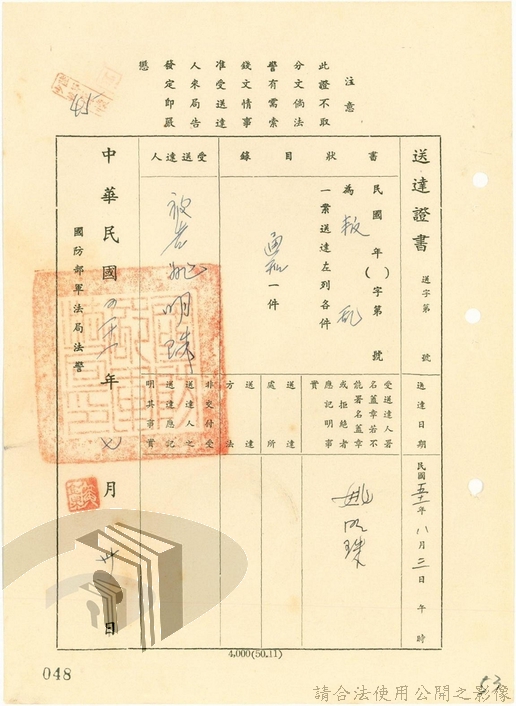 注意
此證不取
分文倘法
警有需索
錢文情事
准受送達
人來局告
發定即嚴
懲
45
送達證書
送字第 號
書狀目錄
受送達人
民國 年( )字第 號
為叛乱
一案送達左列各件
通知一件
被告姚明珠
送達日期
民國五十一年八月三日 午 時
受送達人署
名蓋章若不
能署名蓋章
或拒絕者
應記明事
實
姚明珠
送達處所
送達方法
非交付受
送達人之
送達應記
明其事實
中華民國五十一年七月卅日
國防部軍法局法警
4,000(50.11)
048
53
請合法使用公開之影像